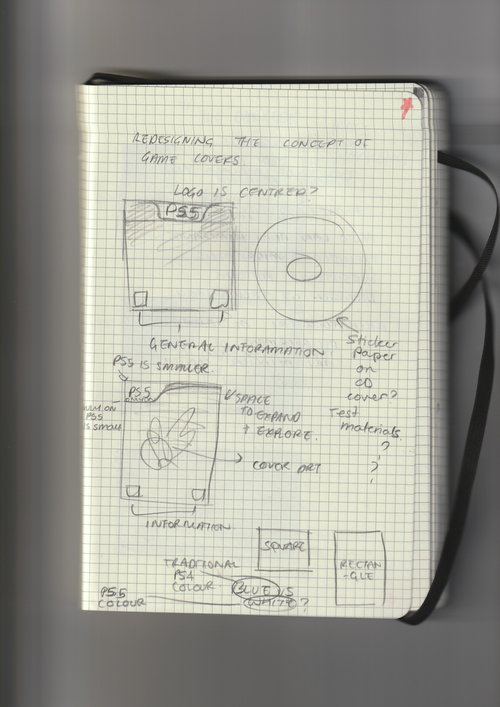 REDESIGNING THE CONCEPT OF
GAME COVERS
LOGO IS CENTRED?
PS5
GENERAL INFORAMATION
Sticker
Paper
on
CD
cover?
Test
materials.
?
?
PS5 IS SMALLER
PS5
ON
PS5
IS SMALL
SPACE
TO EXPAND
+ EXPLORE.
COVER ART
INFORMATION
SQUARE
RECTAN
-GLE
TRADTIONAL
PS4
COLOUR
BLUE VS
WHITE?
PS5
COLOUR